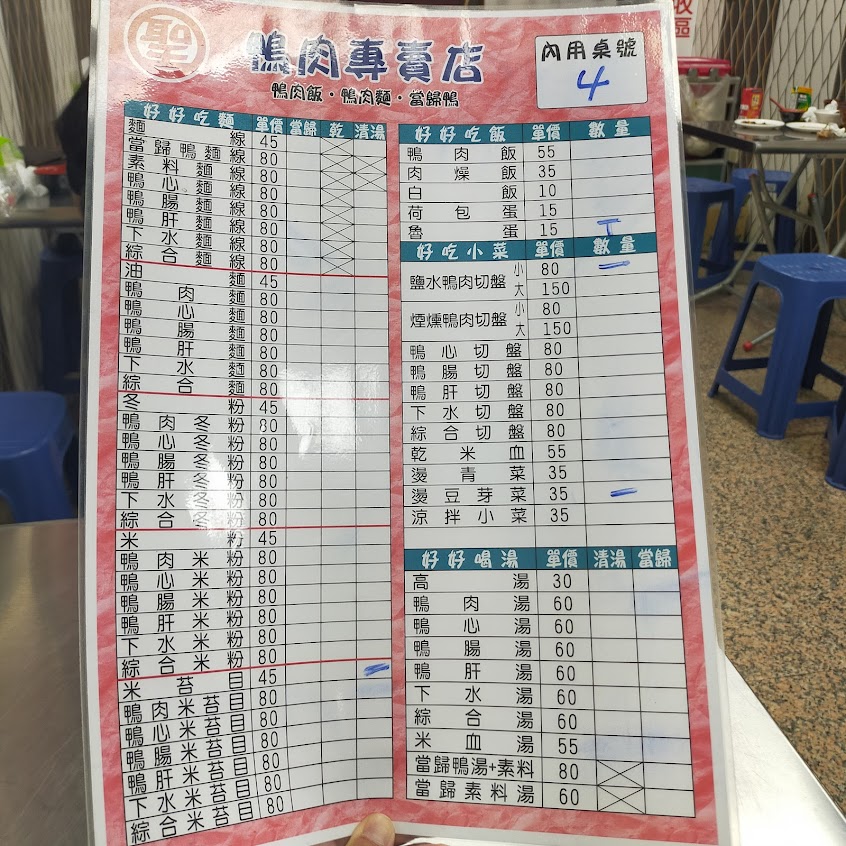 聖
鴨肉專賣店
鴨肉飯・鴨肉麵・當歸鴨
內用桌號
4
收
區
好好吃麵 單價 當歸 乾 清湯
麵線 45
當歸鴨麵線 80
素料麵線 80
鴨心麵線 80
鴨腸麵線 80
鴨肝麵線 80
下水麵線 80
綜合麵線 80
油麵 45
鴨肉麵 80
鴨心麵 80
鴨腸麵 80
鴨肝麵 80
下水麵 80
綜合麵 80
冬粉 45
鴨肉冬粉 80
鴨心冬粉 80
鴨腸冬粉 80
鴨肝冬粉 80
下水冬粉 80
綜合冬粉 80
米粉 45
鴨肉米粉 80
鴨心米粉 80
鴨腸米粉 80
鴨肝米粉 80
下水米粉 80
綜合米粉 80
米苔目 45
鴨肉米苔目 80
鴨心米苔目 80
鴨腸米苔目 80
鴨肝米苔目 80
下水米苔目 80
綜合米苔目 80
好好吃飯 單價 數量
鴨肉飯 55
肉燥飯 35
白飯 10
荷包蛋 15
魯蛋 15
好吃小菜 單價 數量
鹽水鴨肉切盤 小 80
大 150
煙燻鴨肉切盤 小 80
大 150
鴨心切盤 80
鴨腸切盤 80
鴨肝切盤 80
下水切盤 80
綜合切盤 80
乾米血 55
燙青菜 35
燙豆芽菜 35
涼拌小菜 35
好好喝湯 單價 清湯 當歸
高湯 30
鴨肉湯 60
鴨心湯 60
鴨腸湯 60
鴨肝湯 60
下水湯 60
綜合湯 60
米血湯 55
當歸鴨湯+素料 80
當歸素料湯 60